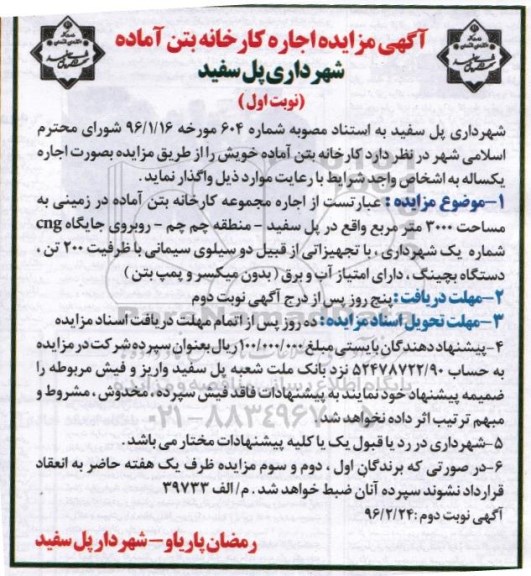 آگهی مزایده اجاره کارخانه بتن آماده
شهرداری پل سفید
(نوبت اول)
شهرداری پل سفید به استناد مصوبه شماره ۶۰۴ مورخه ۹۶/۱/۱۶ شورای محترم
اسلامی شهر در نظر دارد کارخانه بتن آماده خویش را از طریق مزایده بصورت اجاره
یکساله به اشخاص واجد شرایط با رعایت موارد ذیل واگذار نماید.
۱-موضوع مزایده : عبارتست از اجاره مجموعه کارخانه بتن آماده در زمینی به
مساحت ۳۰۰۰ متر مربع واقع در پل سفید - منطقه چم چم - روبروی جایگاه cng
شماره یک شهرداری ، با تجهیزاتی از قبیل دو سیلوی سیمانی با ظرفیت ۲۰۰ تن ،
دستگاه بچینگ ، دارای امتیاز آب و برق ( بدون میکسر و پمپ بتن )
۲-مهلت دریافت : پنج روز پس از درج آگهی نوبت دوم
۳-مهلت تحویل اسناد مزایده : ده روز پس از اتمام مهلت دریافت اسناد مزایده
۴-پیشنهاد دهندگان بایستی مبلغ ۱۰۰/۰۰۰/۰۰۰ ریال بعنوان سپرده شرکت در مزایده
به حساب ۵۲۴۷۸۷۲۲/۹۰ نزد بانک ملت شعبه پل سفید واریز و فیش مربوطه را
ضمیمه پیشنهاد خود نمایند به پیشنهادات فاقد فیش سپرده ، مخدوش ، مشروط و
مبهم ترتیب اثر داده نخواهد شد.
۵-شهرداری در رد یا قبول یک یا کلیه پیشنهادات مختار می باشد.
۶-در صورتی که برندگان اول ، دوم و سوم مزایده ظرف یک هفته حاضر به انعقاد
قرارداد نشوند سپرده آنان ضبط خواهد شد . م/ الف ۳۹۷۳۳
آگهی نوبت دوم :۹۶/۲/۲۴
رمضان پاریاو - شهردار پل سفید
ParsNamadData
پایگاه اطلاع رسانی مناقصه و مزایده
۰۲۱-۸۸۳۴۹۶۷۰